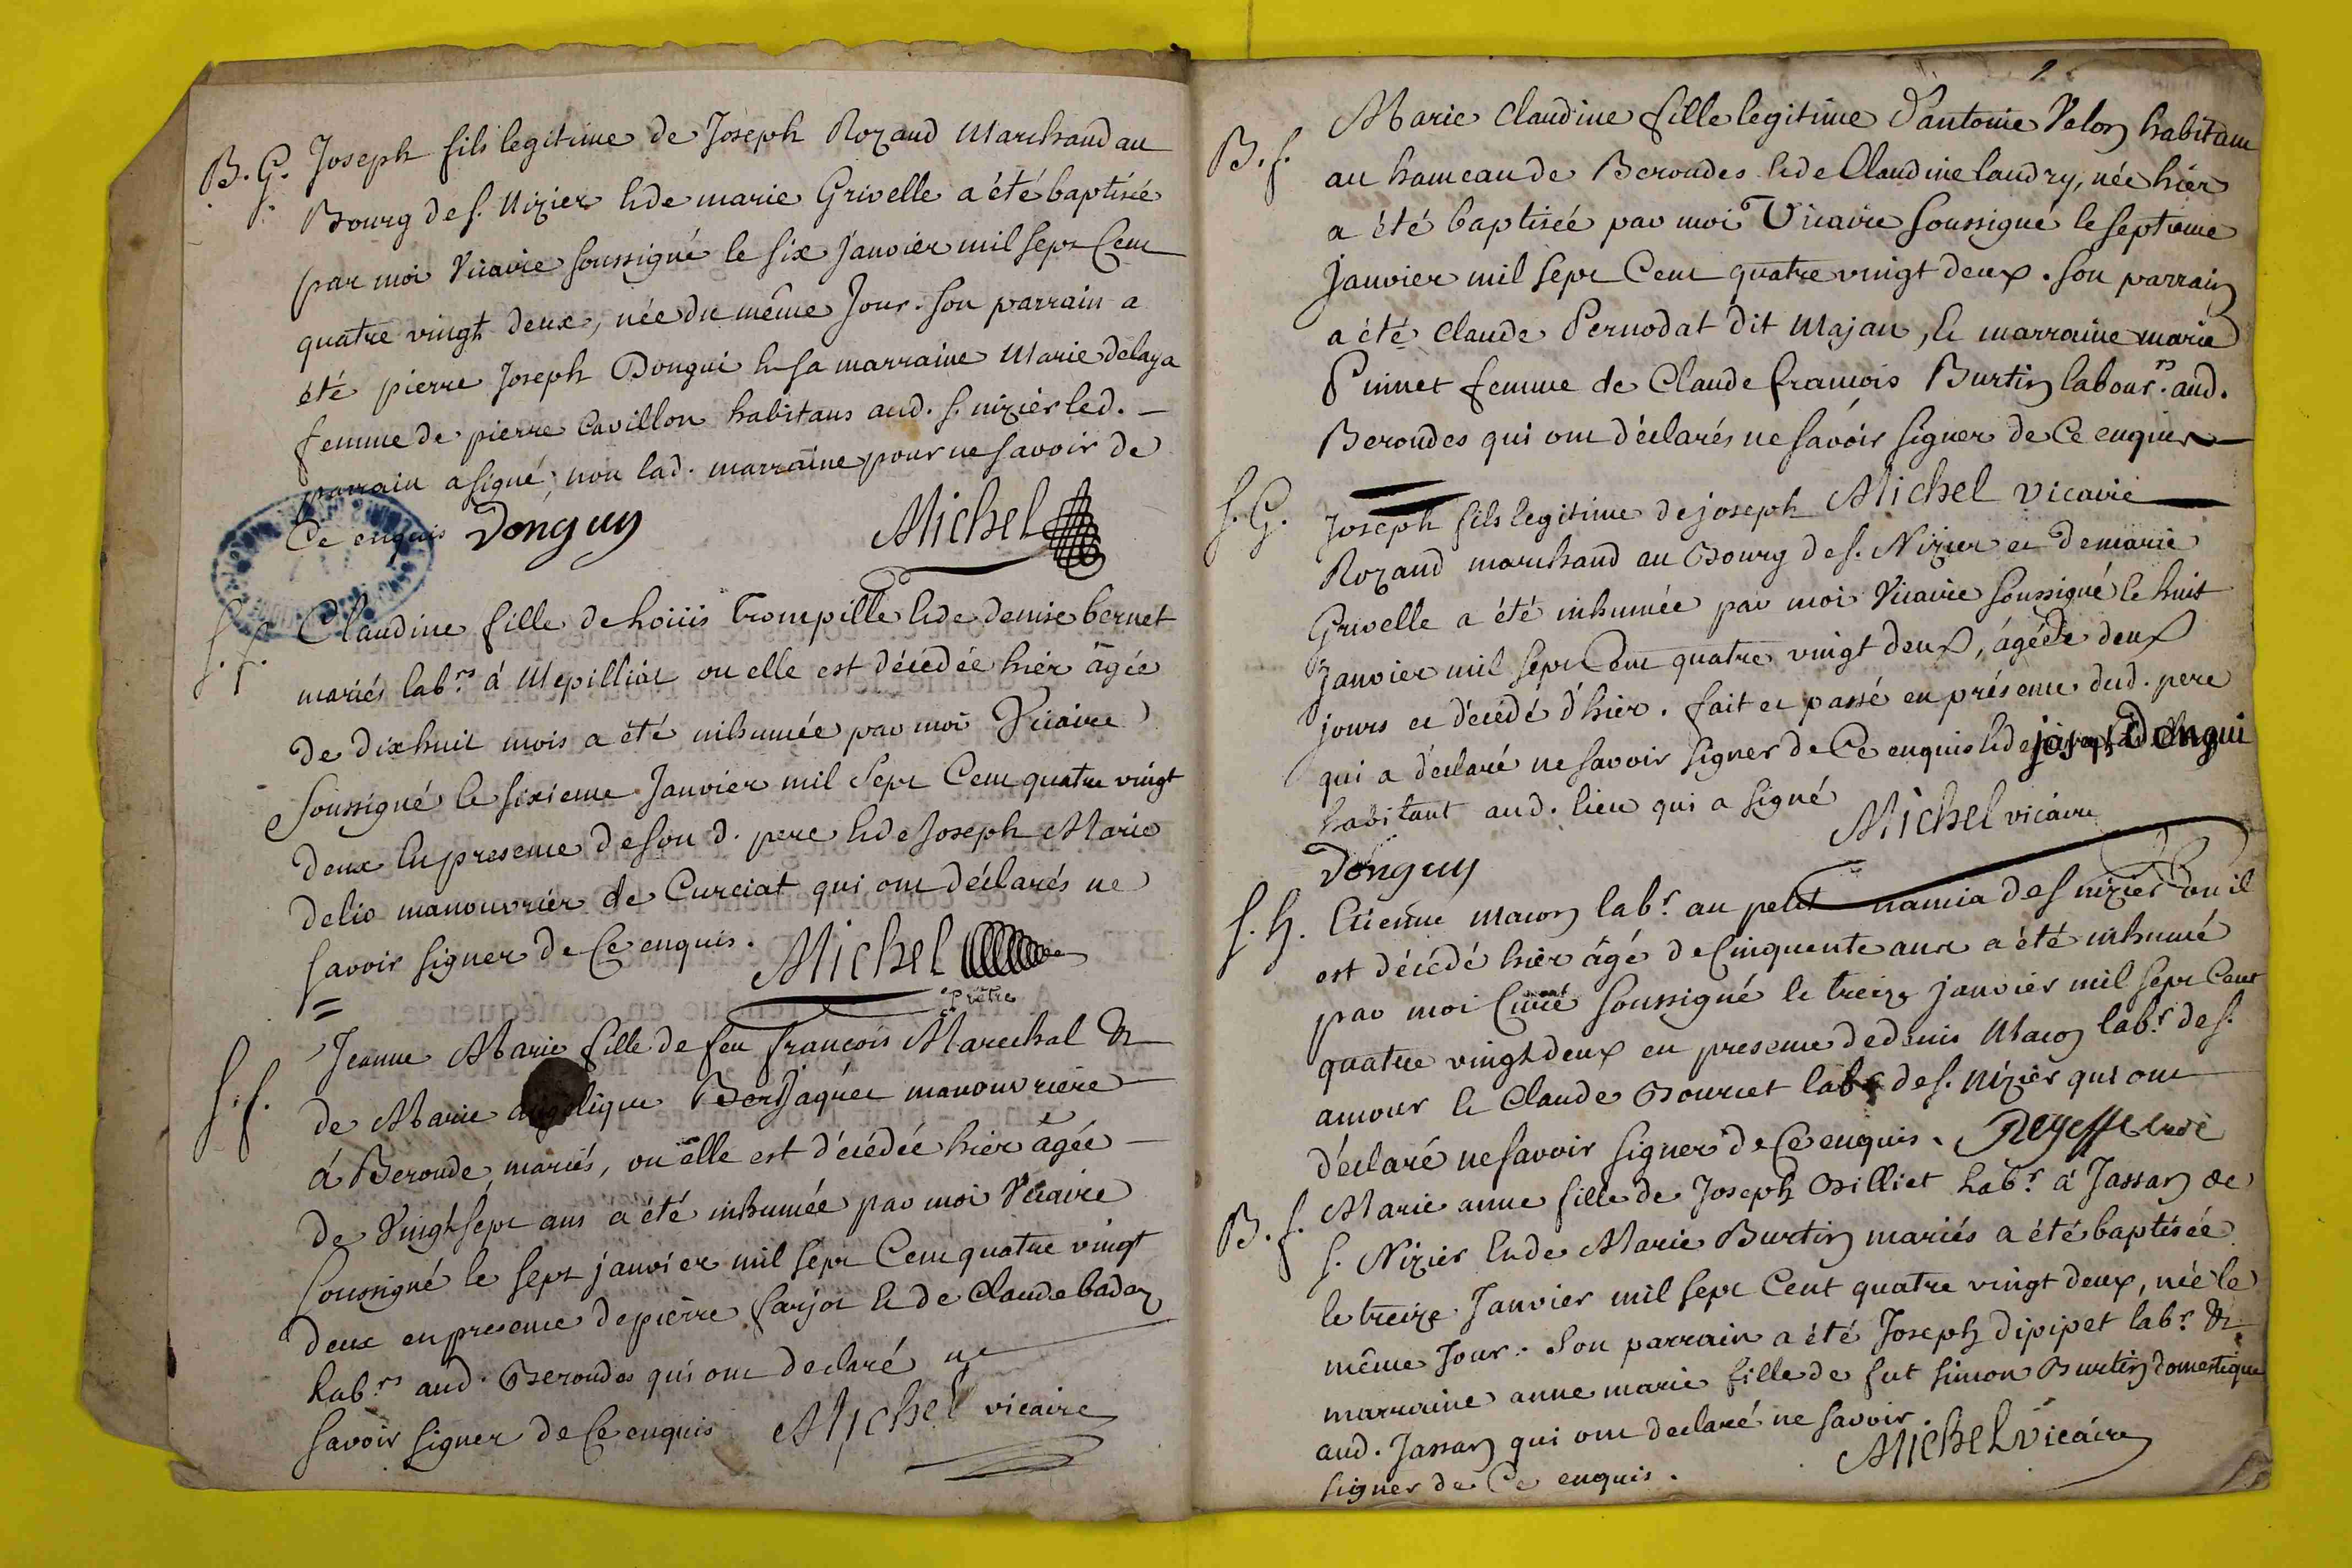 B. G. Joseph fils legitime de Joseph Rozand Marchand au
Bourg de s. Nizier & de marie Grivelle a été baptisée
par moi Vicaire soussigné le six janvier mil sept Cent
quatre vingt deux, née du même Jour. son parrain a
été pierre Joseph Dongui & sa marraine Marie delaya
femme de pierre Cavillon habitans aud. s. nizier led.
parrain a signé, non lad. marraine pour ne savoir de
Ce enquis Donguy Michel
s. f. Claudine fille de Trompille & de denise bernet
mariés labrs à Mepilliat ou elle est décédée hier âgée
de dixhuit mois a été inhumée par moi Vicaire
Soussigné le sixieme Janvier mil Sept Cent quatre vingt
deux En presence de son d. pere & de Joseph Marie
delio manouvrier de Curciat qui ont déclarés ne
savoir signer de Ce enquis. Michel
prêtre
s. f. Jeanne Marie fille de feu francois Marechal &
de Marie angelique manouvriere
à Beronde, mariés, ou elle est décédée hier âgée
de Vingt sept ans a été inhumée par moi Vicaire
Soussigné le sept janvier mil sept Cent quatre vingt
deux en presence de pierre farjot & de Claude badoz
labrs aud. Berondes qui ont declaré ne
savoir signer de Ce enquis Michel vicaire
B. f. Marie Claudine fille legitime d'antoine Velon habitant
au hameau de Berondes & de Claudine laudry, née hier
a été baptisée par moi Vicaire soussigné le septieme
janvier mil sept Cent quatre vingt deux. son parrain
a été Claude Pernodat dit Majan, & marraine marie
Puinet femme de Claude francois Burtin labours. aud.
Berondes qui ont déclarés ne savoir signer de Ce enquis
Michel vicaire
s. G. Joseph fils legitime de joseph
Rozand marchand au Bourg de s. Nizier et de marie
Grivelle a été inhumée par moi Vicaire soussigné le huit
janvier mil sept Cent quatre vingt deux, âgé de deux
jours et décédé d'hier. fait et passé en présence dud. pere
qui a déclaré ne savoir signer de Ce enquis & de joseph Dongui
habitant aud. lieu qui a signé
Michel vicaire
Donguy
s. h. Etienne Macon labr. au petit namia de s nizier ou il
est décédé hier âgé de Cinquante ans a été inhumé
par moi Curé soussigné le treize janvier mil sept Cent
quatre vingt deux en presence de denis Macon labr. de s.
amour & Claude Bourcet labr de s. Nizier qui ont
déclaré ne savoir signer de Ce enquis. curé
B. f. Marie anne fille de Joseph Billiet labr. à Jassan de
s. Nizier & de Marie Burtin mariés a été baptisée
le treize Janvier mil sept Cent quatre vingt deux, née le
même Jour. Son parrain a été Joseph dipipet labr. &
marraine anne marie fille de fut simon Burtin domestique
aud. Jassan qui ont declaré ne savoir
signer de Ce enquis. Michel vicaire